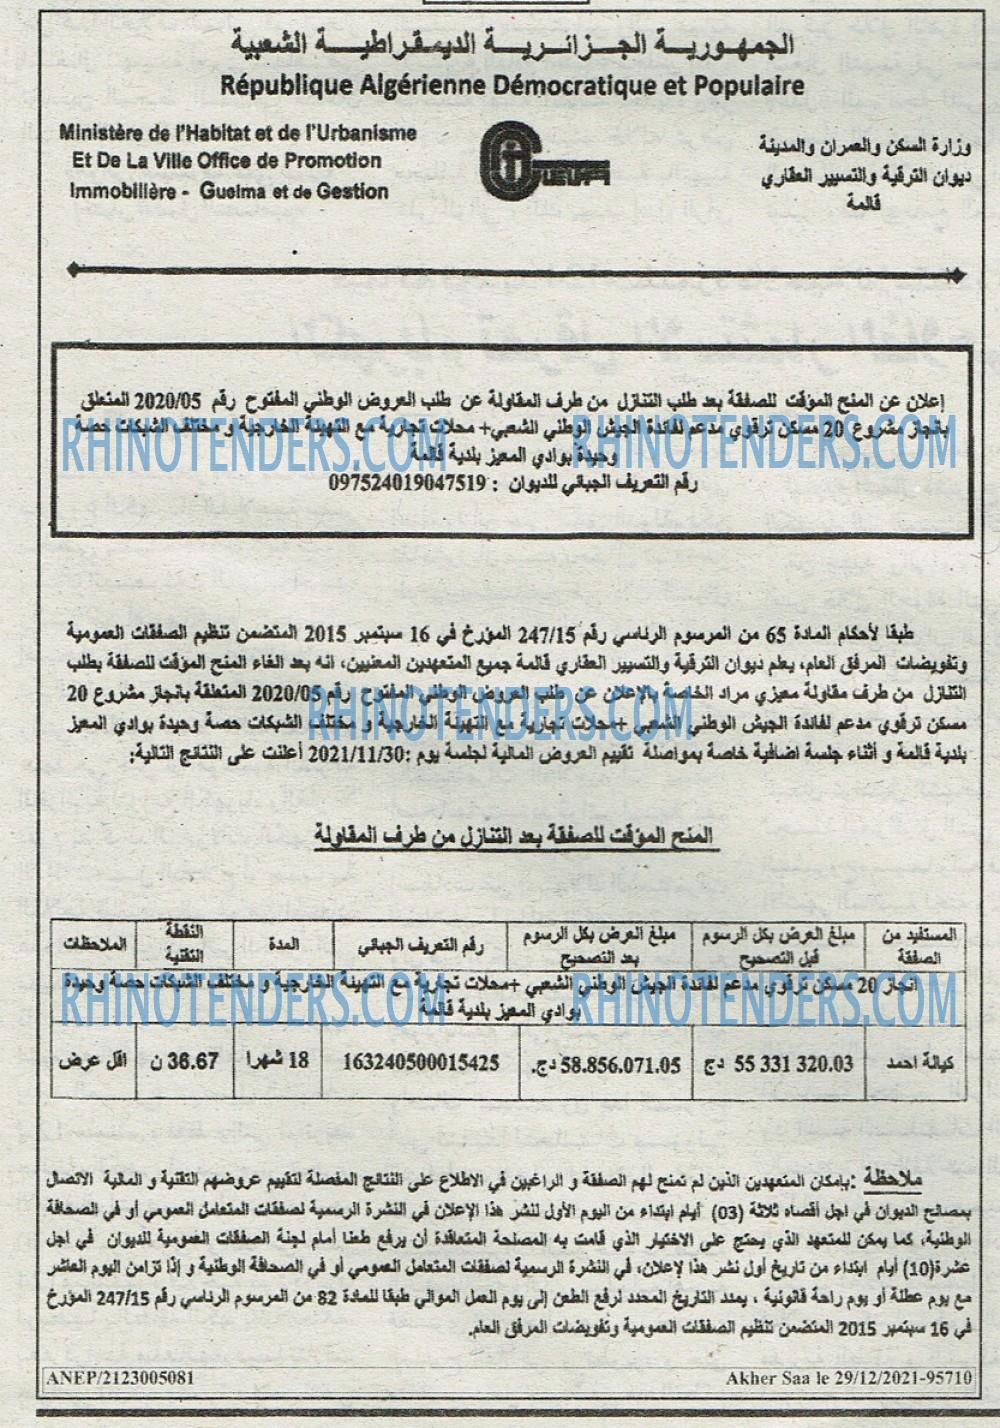 الجمهورية الجزائرية الديمقراطية الشعبية
République Algérienne Démocratique et Populaire
Ministère de l'Habitat et de l'Urbanisme
Et De La Ville Office de Promotion
Immobilière - Guelma et de Gestion
وزارة السكن والعمران والمدينة
ديوان الترقية والتسيير العقاري
قالمة
إعلان عن المنح المؤقت للصفقة بعد طلب التنازل من طرف المقاولة عن طلب العروض الوطني المفتوح رقم 2020/05 المتعلق
بانجاز مشروع 20 مسكن ترقوي مدعم لفائدة الجيش الوطني الشعبي+ محلات تجارية مع التهيئة الخارجية و مختلف الشبكات حصة
وحيدة بوادي المعيز بلدية قالمة
رقم التعريف الجبائي للديوان : 097524019047519
RHINOTENDERS.COM RHINOTENDERS.COM
طبقا لأحكام المادة 65 من المرسوم الرئاسي رقم 247/15 المؤرخ في 16 سبتمبر 2015 المتضمن تنظيم الصفقات العمومية
وتفويضات المرفق العام، يعلم ديوان الترقية والتسيير العقاري قالمة جميع المتعهدين المعنيين، انه بعد الغاء المنح المؤقت للصفقة بطلب
التنازل من طرف مقاولة معيزي مراد الخاصة بالإعلان عن طلب العروض الوطني المفتوح رقم 2020/05 المتعلقة بانجاز مشروع 20
مسكن ترقوي مدعم لفائدة الجيش الوطني الشعبي +محلات تجارية مع التهيئة الخارجية و مختلف الشبكات حصة وحيدة بوادي المعيز
بلدية قالمة و أثناء جلسة اضافية خاصة بمواصلة تقييم العروض المالية لجلسة يوم :2021/11/30 أعلنت على النتائج التالية:
RHINOTENDERS.COM
المنح المؤقت للصفقة بعد التنازل من طرف المقاولة
المستفيد من الصفقة مبلغ العرض بكل الرسوم قبل التصحيح مبلغ العرض بكل الرسوم بعد التصحيح رقم التعريف الجبائي المدة النقطة التقنية الملاحظات
انجاز 20 مسكن ترقوي مدعم لفائدة الجيش الوطني الشعبي +محلات تجارية مع التهيئة الخارجية و مختلف الشبكات حصة وحيدة
بوادي المعيز بلدية قالمة
RHINOTENDERS.COM RHINOTENDERS.COM
كيالة احمد 55 331 320.03 دج 58.856.071.05 دج. 163240500015425 18 شهرا 36.67 ن اقل عرض
ملاحظة :بإمكان المتعهدين الذين لم تمنح لهم الصفقة و الراغبين في الاطلاع على النتائج المفصلة لتقييم عروضهم التقنية و المالية الاتصال
بمصالح الديوان في اجل أقصاه ثلاثة (03) أيام ابتداء من اليوم الأول لنشر هذا الإعلان في النشرة الرسمية لصفقات المتعامل العمومي أو في الصحافة
الوطنية، كما يمكن للمتعهد الذي يحتج على الاختيار الذي قامت به المصلحة المتعاقدة أن يرفع طعنا أمام لجنة الصفقات العمومية للديوان في اجل
عشرة(10) أيام ابتداء من تاريخ أول نشر هذا لإعلان، في النشرة الرسمية لصفقات المتعامل العمومي أو في الصحافة الوطنية و إذا تزامن اليوم العاشر
مع يوم عطلة أو يوم راحة قانونية ، يمدد التاريخ المحدد لرفع الطعن إلى يوم العمل الموالي طبقا للمادة 82 من المرسوم الرئاسي رقم 247/15 المؤرخ
في 16 سبتمبر 2015 المتضمن تنظيم الصفقات العمومية وتفويضات المرفق العام.
ANEP/2123005081
Akher Saa le 29/12/2021-95710